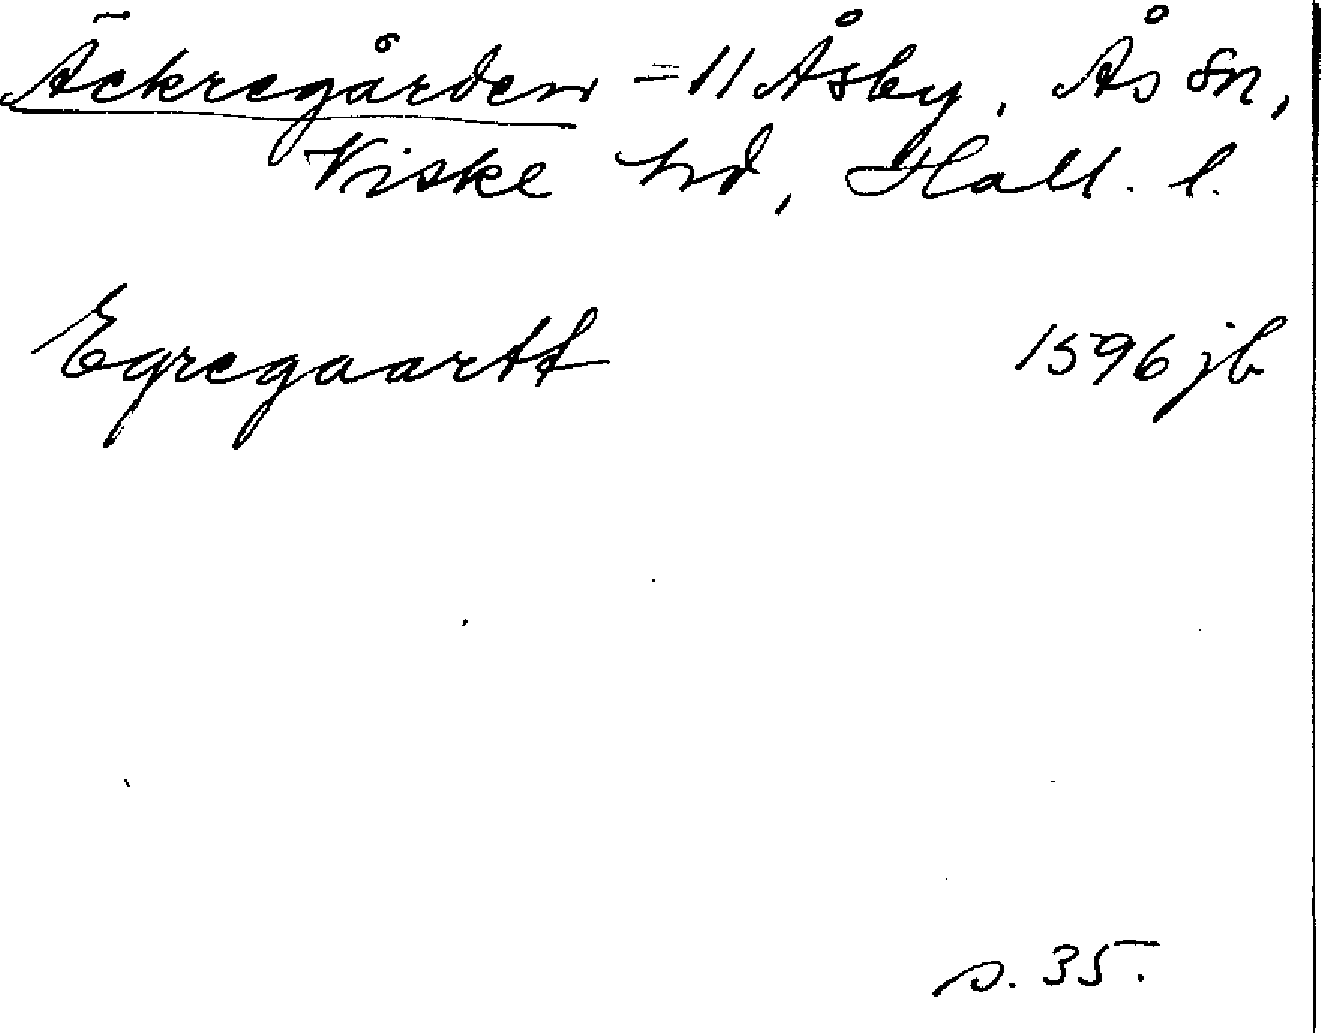 Äckregården = 11 Åsby, Ås sn,
Viske hd, Hall. l.
Egregaartt 1596 jb
s. 35.